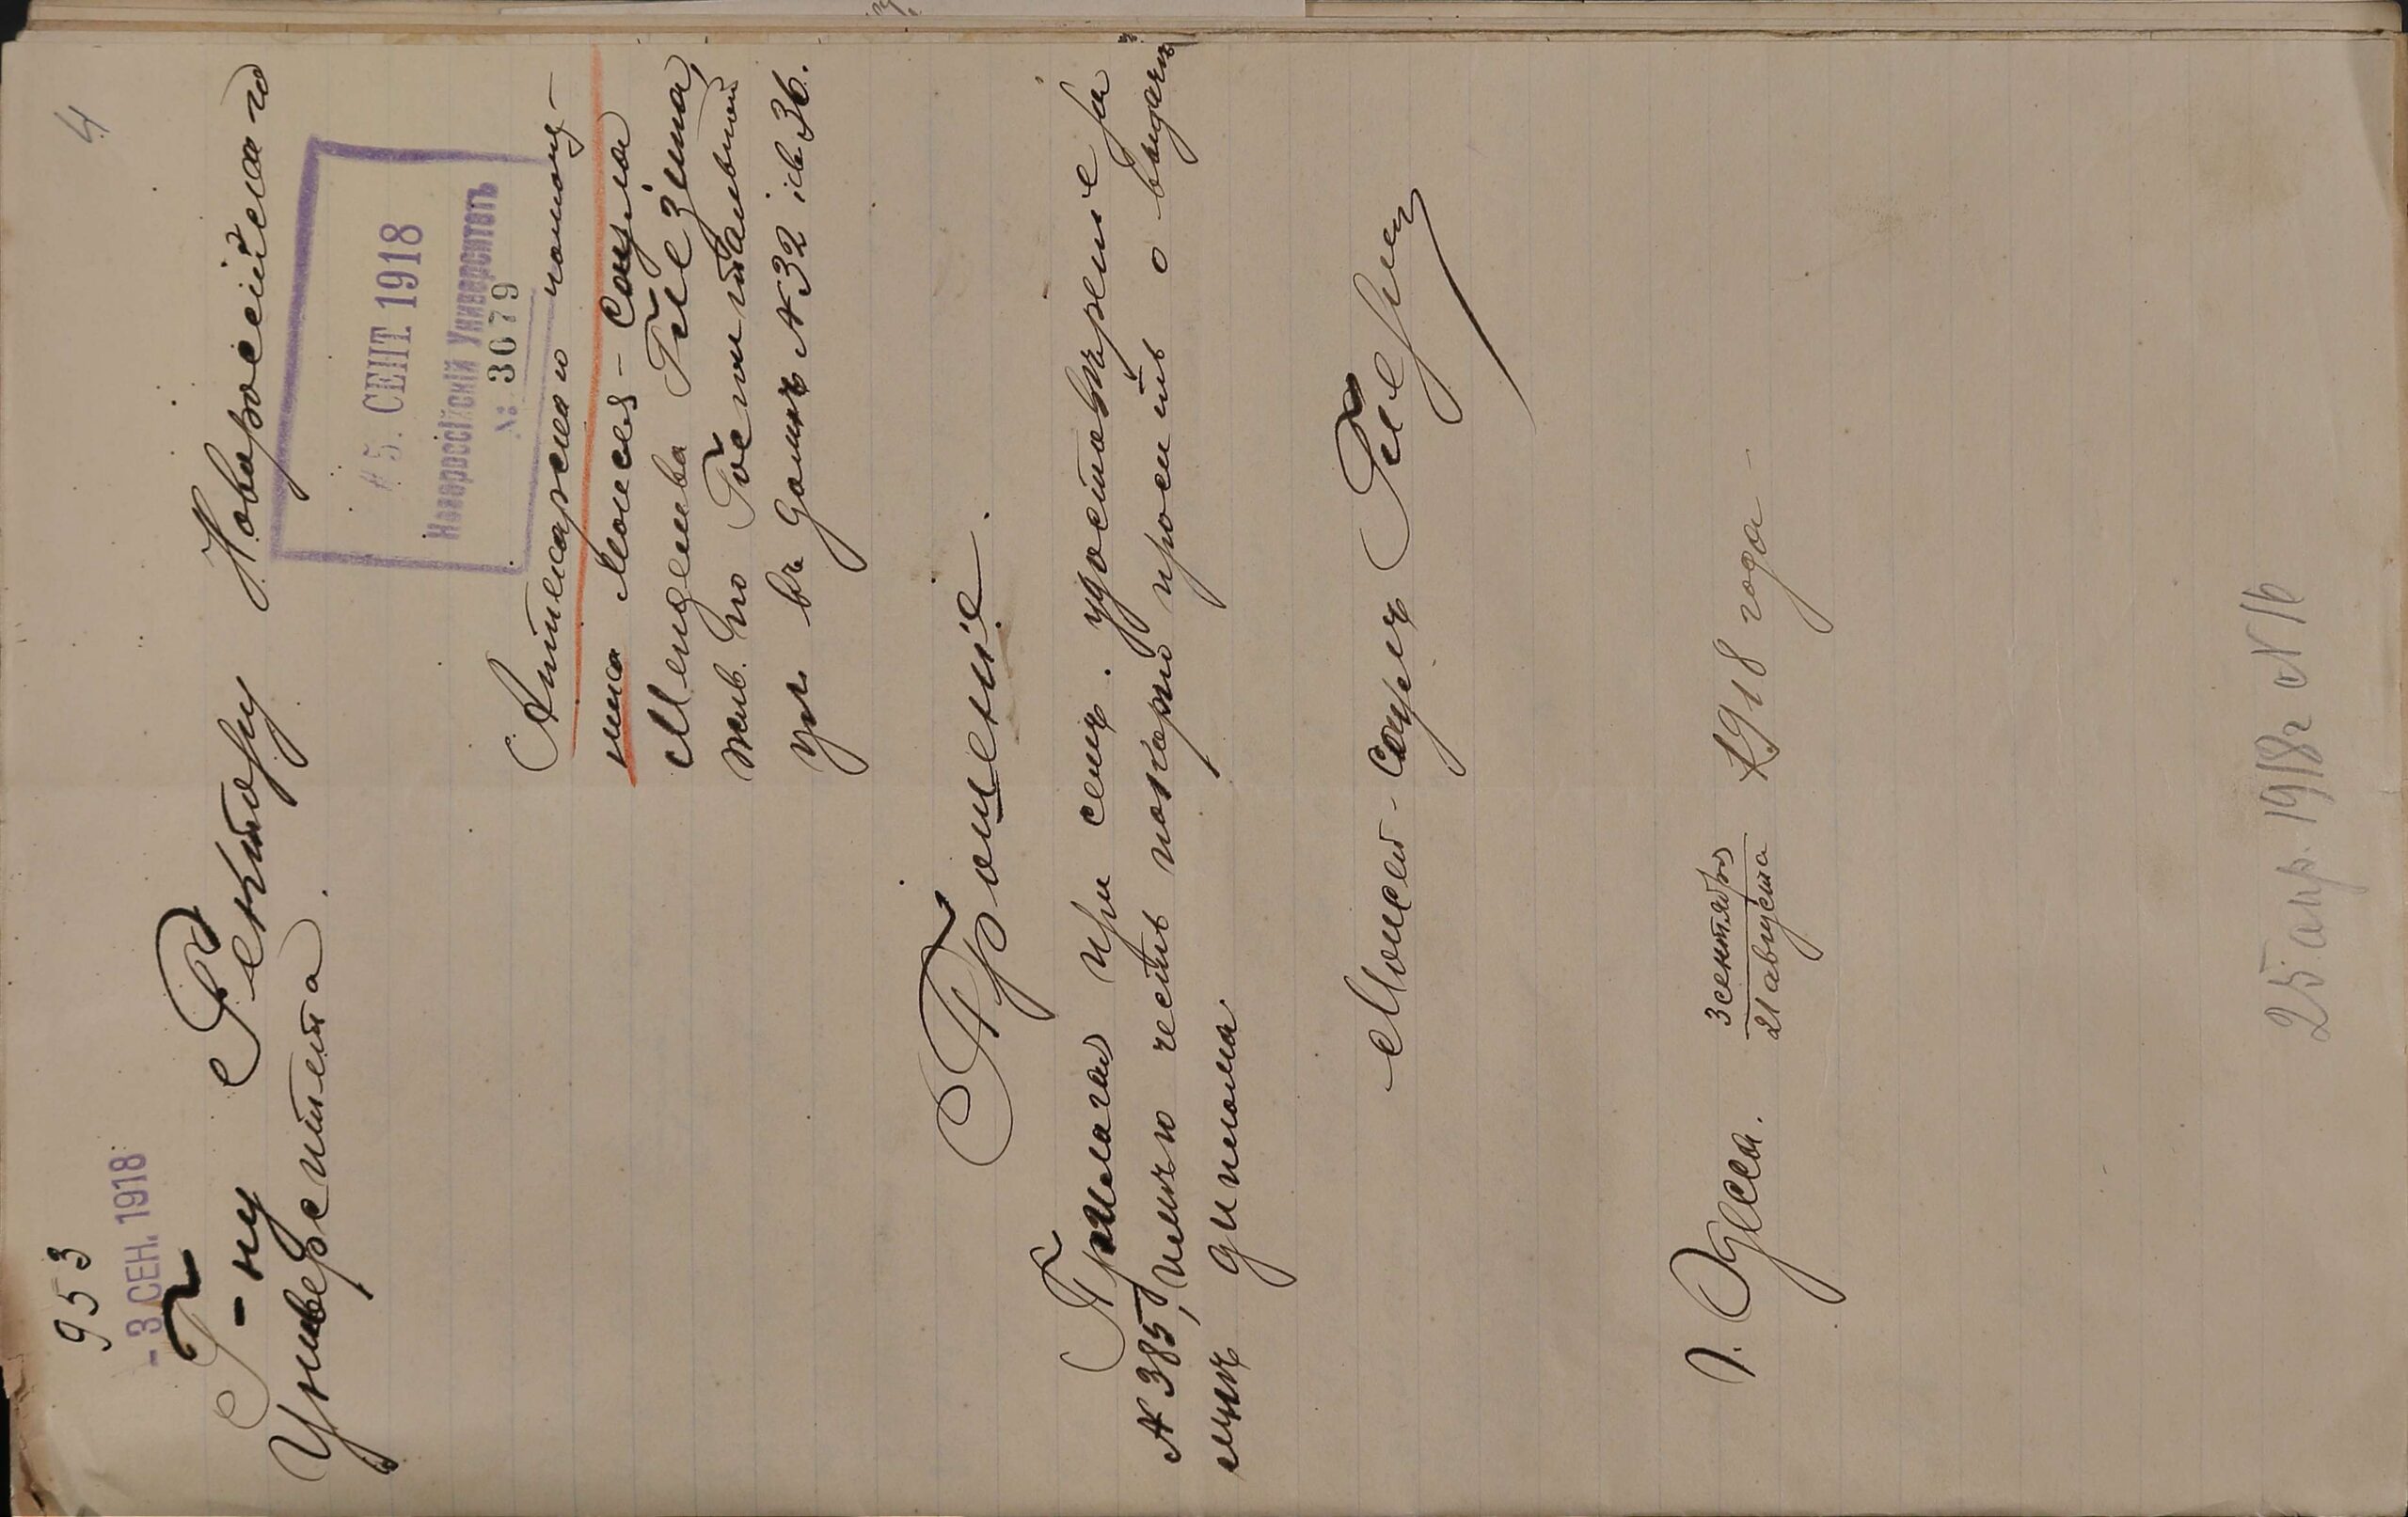 4
953
- 3 СЕН. 1918
Г-ну Ректору Новороссійскаго
Университета.
5. СЕНТ. 1918
Новороссійскій Университетъ
№: 3079
Аптекарскаго помощ-
ника Моисея-Саула
Менделева Глезина,
жив. по Госпитальной
ул. въ домѣ №32 кв. 36.
Прошеніе.
Прилагая при семъ удостовѣреніе за
№ 385, имѣю честь покорно просить о выдачѣ
мнѣ диплома
Моисей-Саулъ Глезин
г. Одесса. 3 сентября 1918 года
21 августа
25 апр. 1918г №16